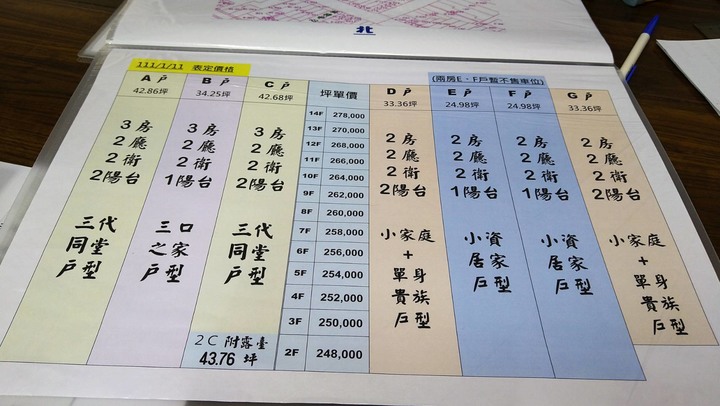 北
111/1/11 表定價格
(兩房E、F戶暫不售車位)
A戶 B戶 C戶 坪單價 D戶 E戶 F戶 G戶
42.86坪 34.25坪 42.68坪 33.36坪 24.98坪 24.98坪 33.36坪
3房 3房 3房 2房 2房 2房 2房
2廳 2廳 2廳 2廳 2廳 2廳 2廳
2衛 2衛 2衛 2衛 2衛 2衛 2衛
2陽台 1陽台 2陽台 2陽台 1陽台 1陽台 2陽台
三代 三口 三代 小家庭 小資 小資 小家庭
同堂 之家 同堂 + 居家 居家 +
戶型 戶型 戶型 單身 戶型 戶型 單身
貴族 貴族
戶型 戶型
14F 278,000
13F 270,000
12F 268,000
11F 266,000
10F 264,000
9F 262,000
8F 260,000
7F 258,000
6F 256,000
5F 254,000
4F 252,000
3F 250,000
2F 248,000
2C附露臺
43.76 坪